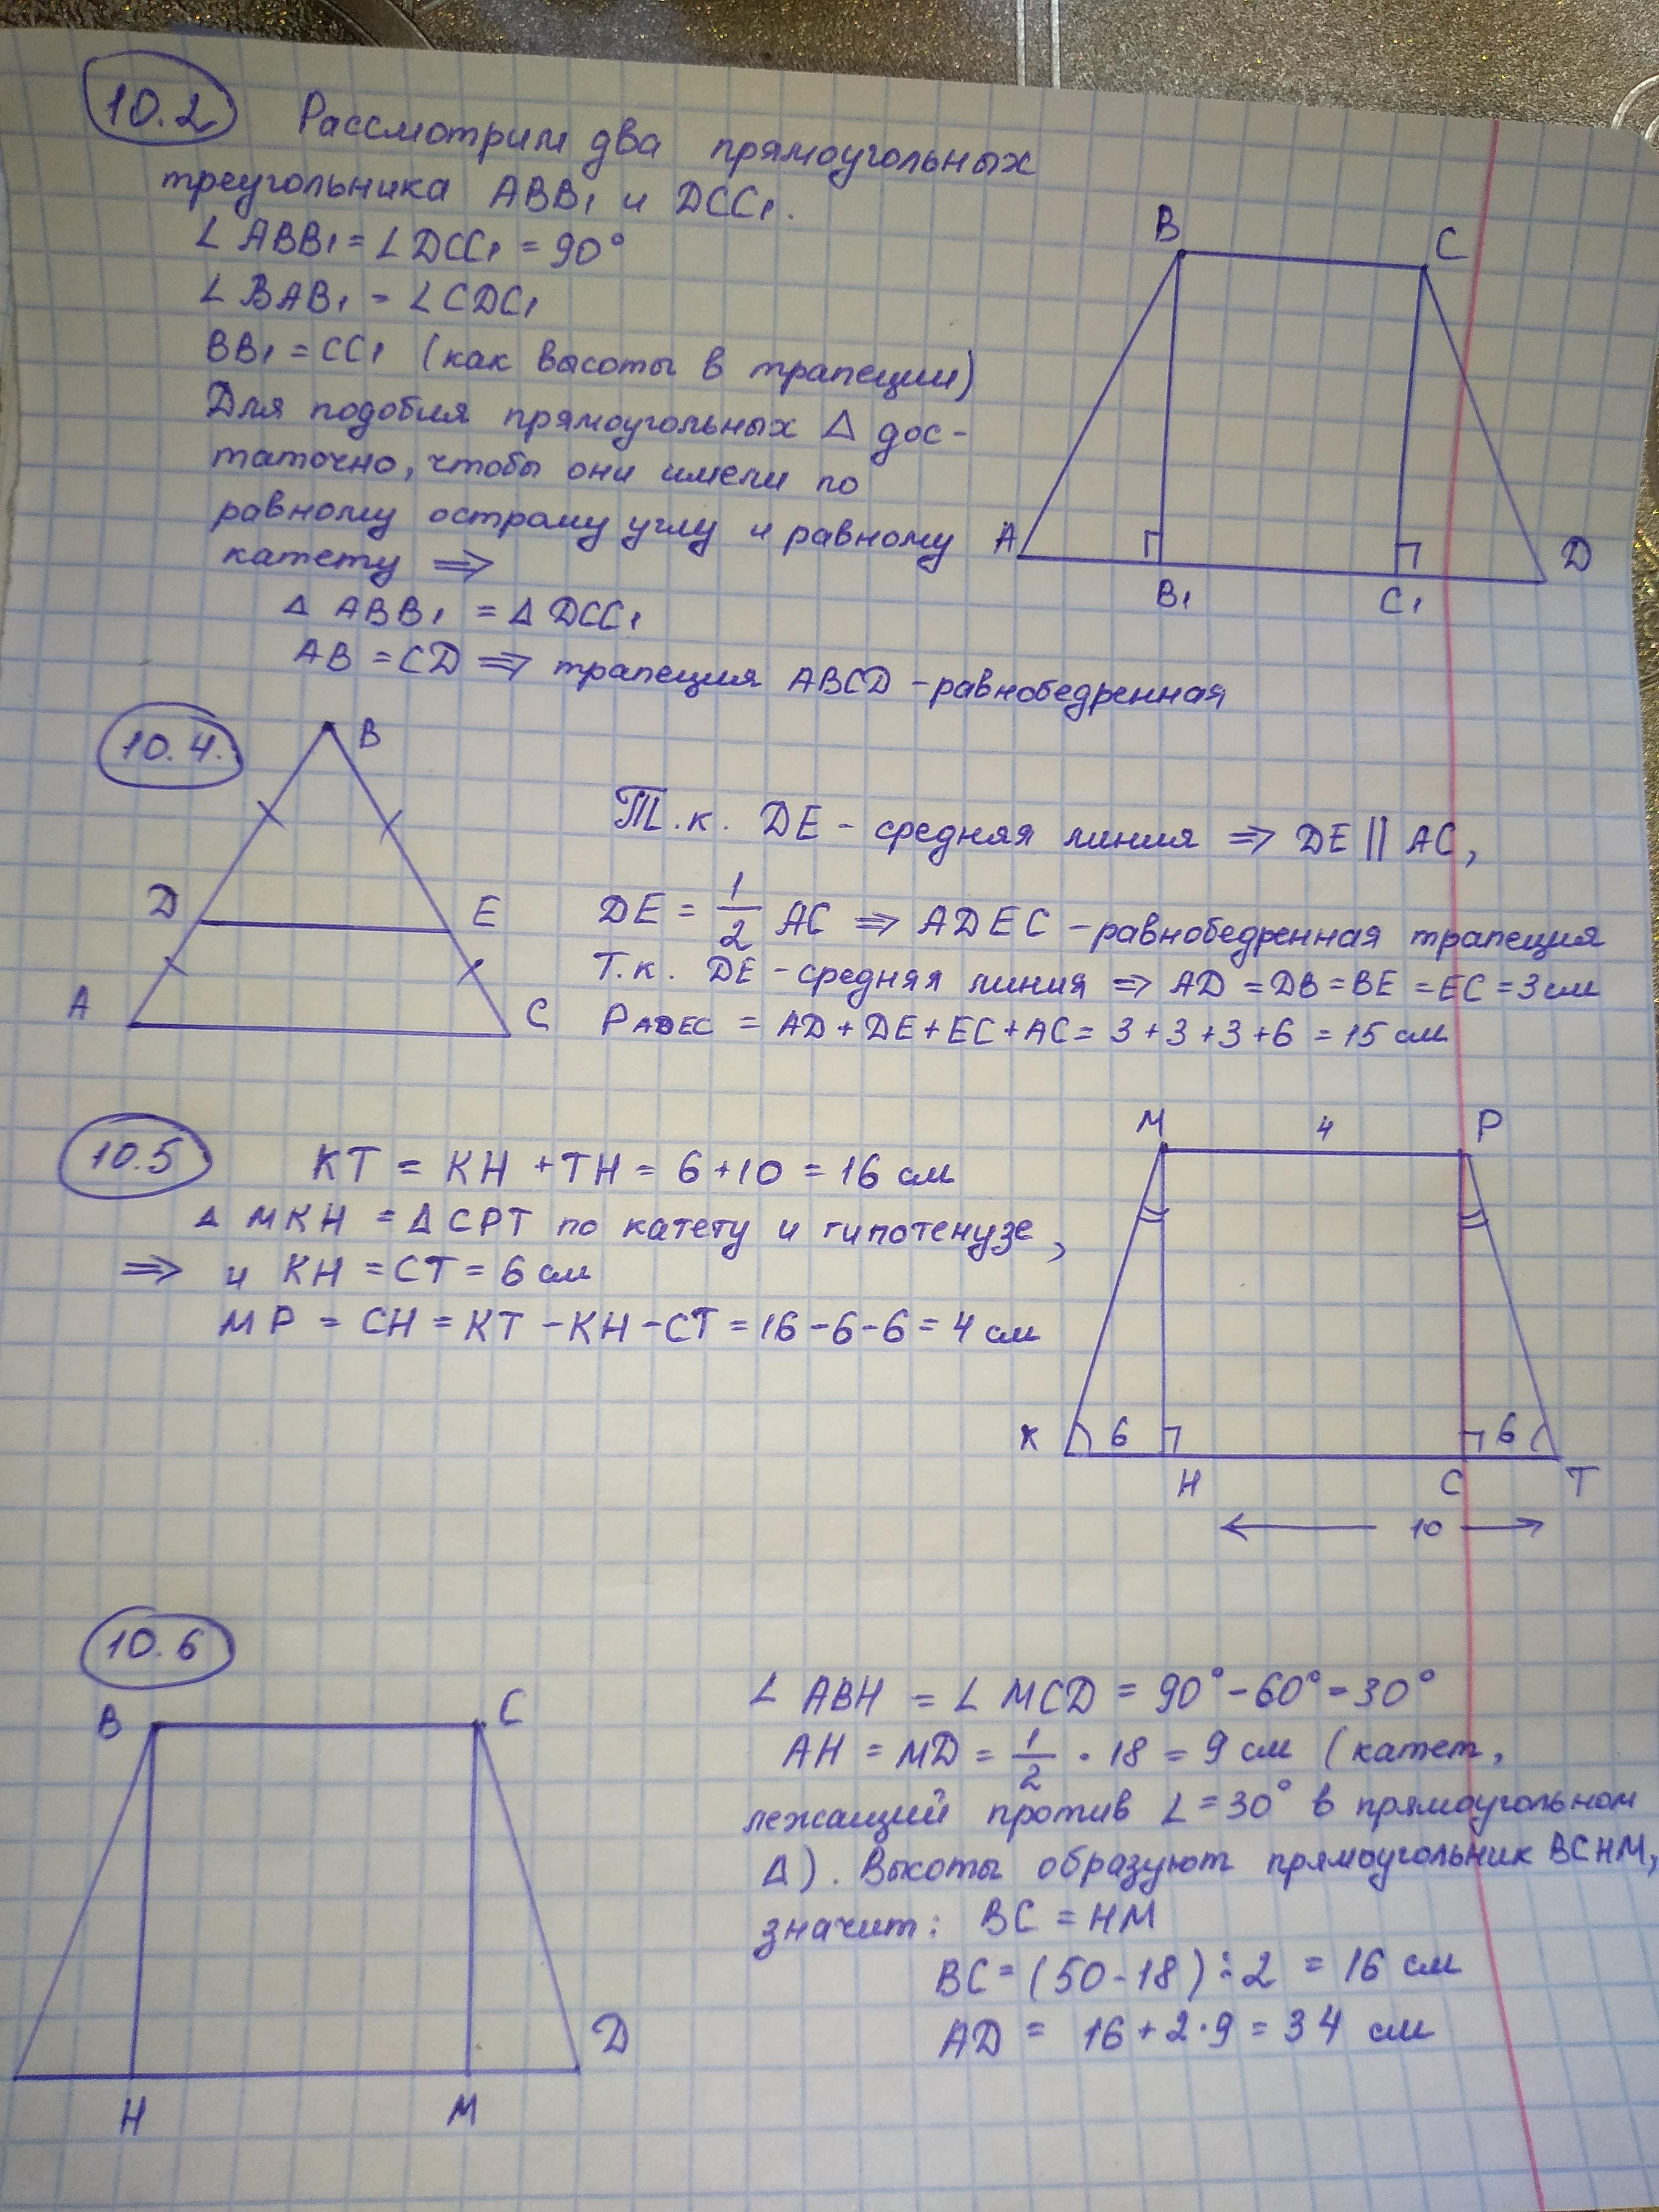 10.2 Рассмотрим два прямоугольных
треугольника ABB₁ и DCC₁.
∠ABB₁ = ∠DCC₁ = 90°
∠BAB₁ = ∠CDC₁
BB₁ = CC₁ (как высоты в трапеции)
Для подобия прямоугольных Δ дос-
таточно, чтобы они имели по
равному острому углу и равному
катету ⇒
Δ ABB₁ = Δ DCC₁
AB = CD ⇒ трапеция ABCD - равнобедренная
B C
A B₁ C₁ D
10.4.
B
D E
A C
Т.к. DE - средняя линия ⇒ DE || AC,
DE = 1/2 AC ⇒ ADEC - равнобедренная трапеция
Т.к. DE - средняя линия ⇒ AD = DB = BE = EC = 3 см
PADEC = AD + DE + EC + AC = 3 + 3 + 3 + 6 = 15 см
10.5 KT = KH + TH = 6 + 10 = 16 см
Δ MKH = Δ CPT по катету и гипотенузе,
⇒ и KH = CT = 6 см
MP = CH = KT - KH - CT = 16 - 6 - 6 = 4 см
M 4 P
K 6 6
H C T
10
10.6
B C
D
H M
∠ ABH = ∠ MCD = 90° - 60° = 30°
AH = MD = 1/2 · 18 = 9 см (катет,
лежащий против ∠ = 30° в прямоугольном
Δ). Высоты образуют прямоугольник BCHM,
значит: BC = HM
BC = (50 - 18) ÷ 2 = 16 см
AD = 16 + 2 · 9 = 34 см